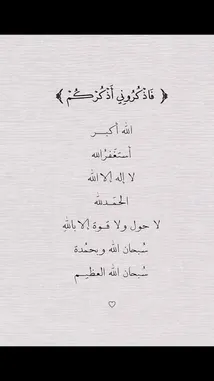 ﴿ فَاذْكُرُونِي أَذْكُرْكُمْ ﴾
الله أكبر
أستَغفرُالله
لا إله إلا الله
الحَمَدلله
لا حول ولا قوة إلا بالله
سُبحان الله وبحمُدة
سُبحان الله العظيم
♡